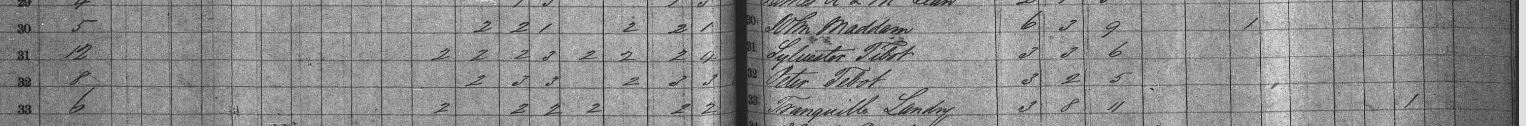 30 5 2 2 1 2 2 1 30 John Maddam 6 3 9 1
31 12 2 2 2 3 2 2 2 4 31 Sylvester Tibot 3 3 6
32 8 2 3 3 2 3 3 32 Peter Tebot 3 2 5
33 6 2 2 2 2 2 2 33 Tranquille Landry 3 8 11 1